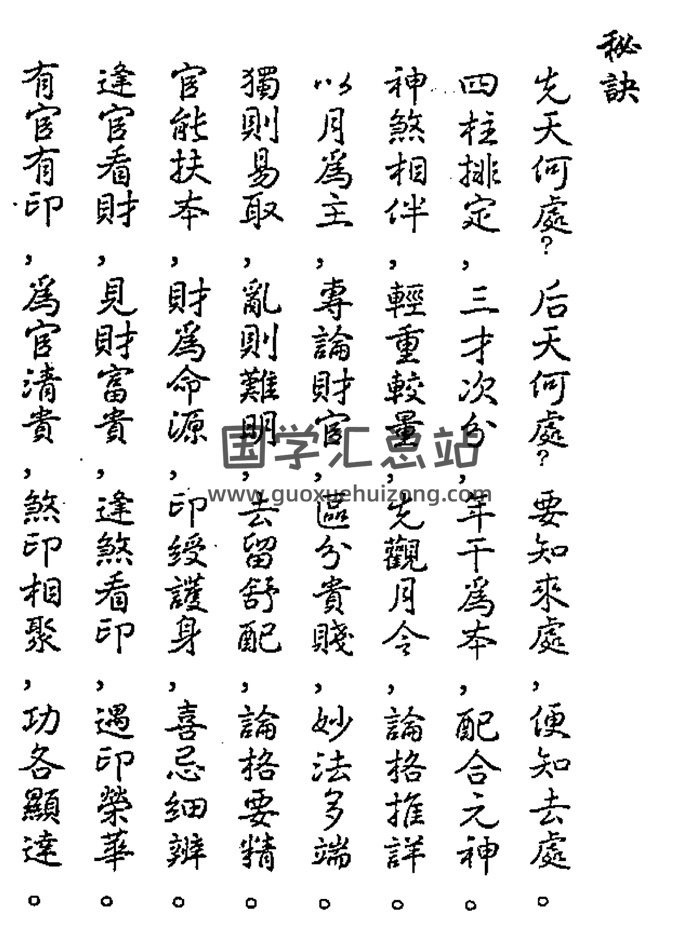 秘訣
先天何處?后天何處?要知來處,便知去處。
四柱排定,三才次分,年干爲本,配合元神。
神煞相伴,輕重較量,先觀月令,論格推詳。
以月爲主,專論財官,區分貴賤,妙法多端。
獨則易取,亂則難明,去留舒配,論格要精。
官能扶本,財爲命源,印綬護身,喜忌细辨。
逢官看財,見財富貴,逢煞看印,遇印榮華。
有官有印,爲官清貴,煞印相聚,功各顯達。
国学汇总站
www.guoxuehuizong.com